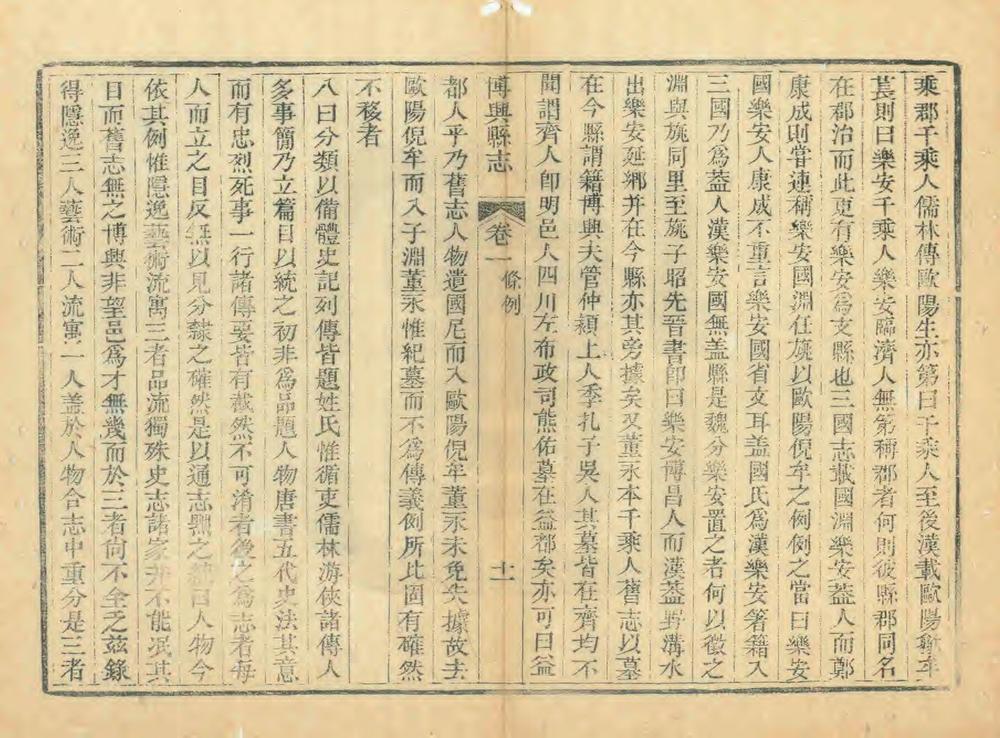 乘郡千乘人儒林傳歐陽生亦第曰千乘人至後漢載歐陽歙牟
萇則曰樂安千乘人樂安臨濟人無第稱郡者何則彼縣郡同名
在郡治而此更有樂安為支縣也三國志載國淵樂安蓋人而鄭
康成則嘗連稱樂安國淵任旐以歐陽倪牟之例例之當曰樂安
國樂安人康成不重言樂安國省文耳盖國氏為漢樂安箸籍入
三國乃為葢人漢樂安國無盖縣是魏分樂安置之者何以徵之
淵與旐同里至旐子昭先晉書卽曰樂安博昌人而漢葢野溝水
出樂安延鄉并在今縣亦其旁據矣又董永本千乘人舊志以墓
在今縣謂籍博興夫管仲潁上人季扎子吳人其墓皆在齊均不
聞謂齊人卽明邑人四川左布政司熊佑墓在益都矣亦可曰益
博興縣志
卷一
條例
十一
都人乎乃舊志人物遺國尼而入歐陽倪牟董永未免失據故去
歐陽倪牟而入子淵董永惟紀墓而不為傳義例所比固有確然
不移者
八曰分類以備體史記列傳皆題姓氏惟循吏儒林游俠諸傳人
多事簡乃立篇目以統之初非為品題人物唐書五代史法其意
而有忠烈死事一行諸傳要皆有截然不可淆者後之為志者每
人而立之目反無以見分隸之確然是以通志槩之曰人物今
依其例惟隱逸藝術流寓三者品流獨殊史志諸家并不能泯其
目而舊志無之博興非望邑為才無幾而於三者尙不全乏茲錄
得隱逸三人藝術二人流寓一人盖於人物合志中重分是三者